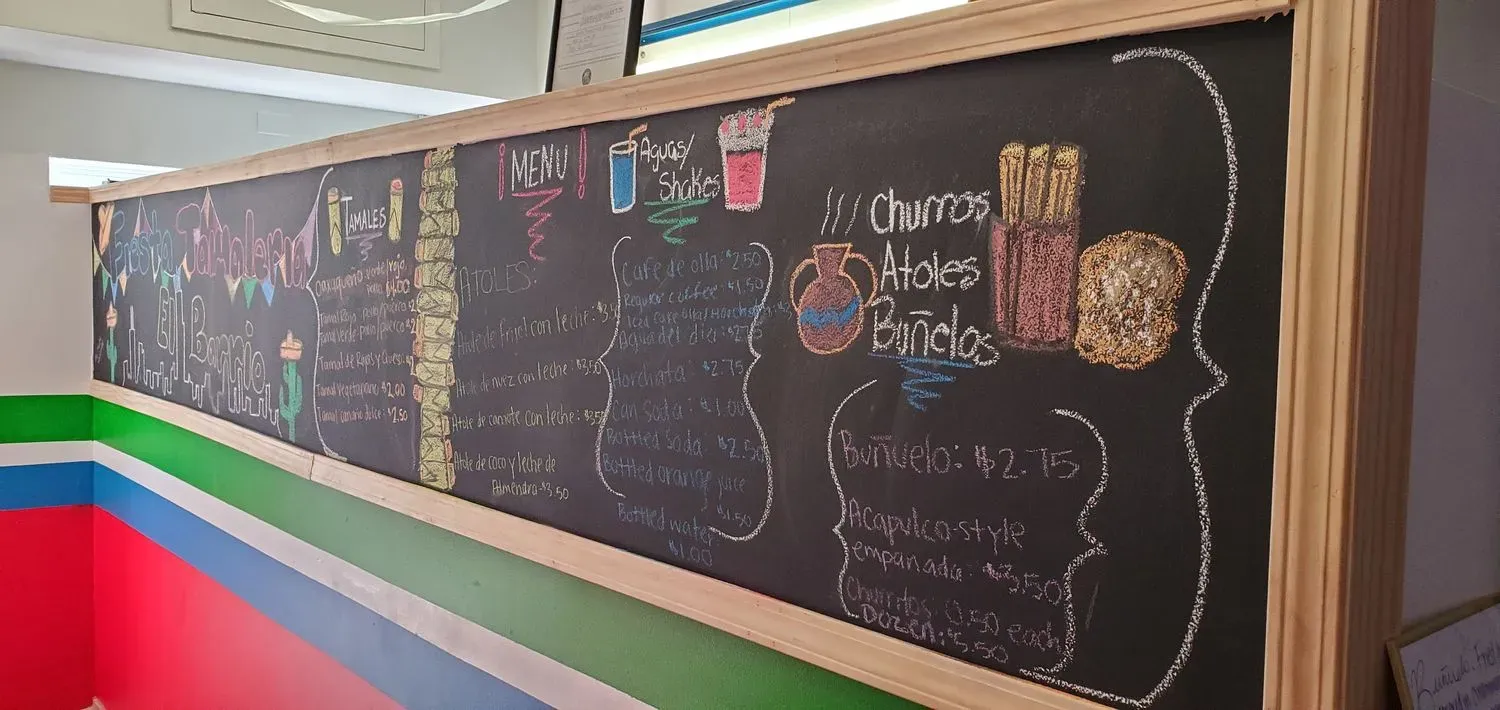 Fiesta Tamaleria
El Barrio
TAMALES
Oaxaqueño verde/rojo
$4.00
Tamal Rojo pollo/puerco
Tamal verde pollo/puerco
Tamal de Rajas y Queso
Tamal vegetariano $2.00
Tamal canario dulce: $2.50
¡MENU!
ATOLES:
Atole de frijol con leche:
Atole de nuez con leche: $3.50
Atole de camote con leche:
Atole de coco y leche de
Almendra-$3.50
Aguas/
Shakes
Cafe de olla: $2.50
Regular coffee: $1.50
Iced cafe olla/Horchata
Agua del dia:
Horchata: $2.75
Can soda: $1.00
Bottled Soda: $2.50
Bottled orange juice
$1.50
Bottled water
$1.00
Churros
Atoles
Buñelos
Buñuelo: $2.75
Acapulco-style
empanada: $3.50
Churritos: 0.50 each
Dozen: $5.50
Buñuelo: